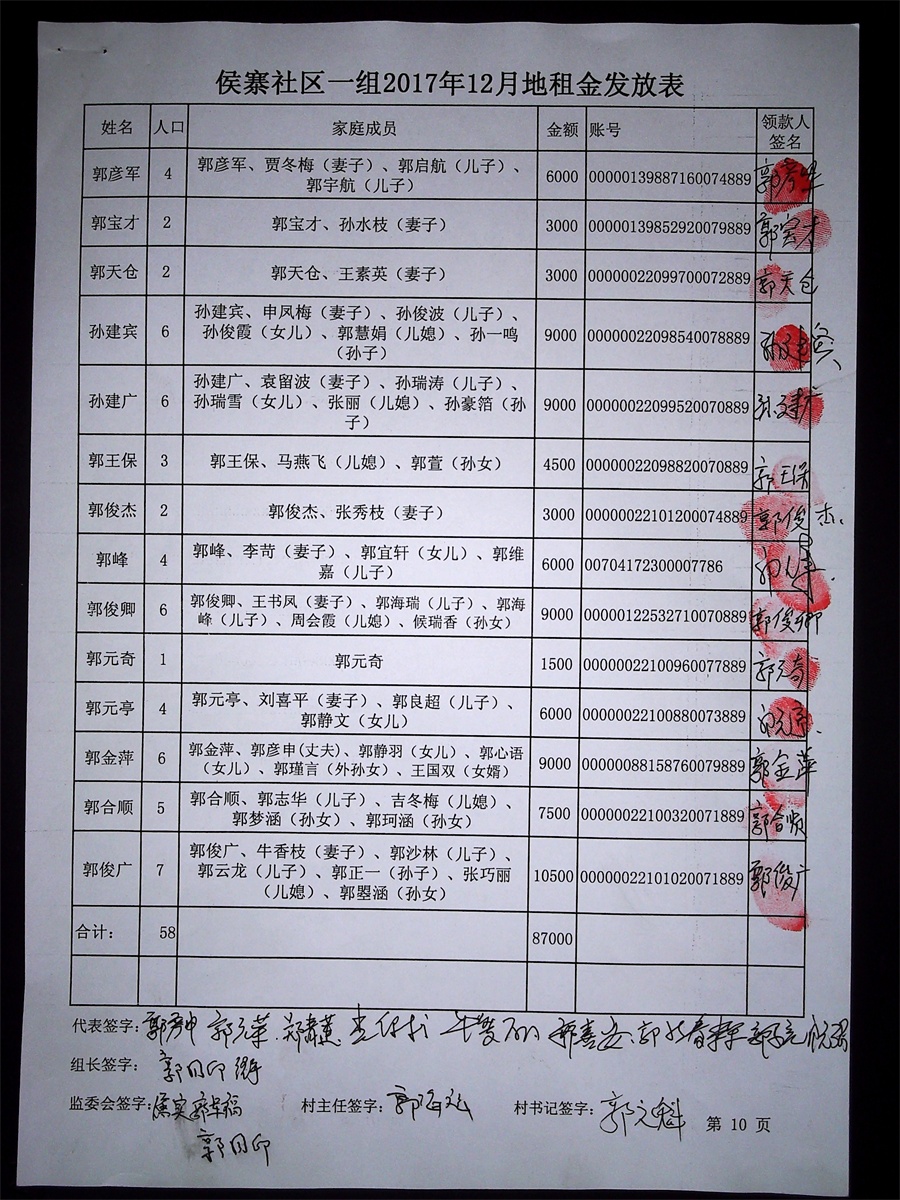 侯寨社区一组2017年12月地租金发放表
姓名 人口 家庭成员 金额 账号 领款人
签名
郭彦军 4 郭彦军、贾冬梅（妻子）、郭启航（儿子）、 6000 00000139887160074889 郭彦军
郭宇航（儿子）
郭宝才 2 郭宝才、孙水枝（妻子） 3000 00000139852920079889 郭宝才
郭天仓 2 郭天仓、王素英（妻子） 3000 00000022099700072889 郭天仓
孙建宾、申凤梅（妻子）、孙俊波（儿子）、
孙建宾 6 孙俊霞（女儿）、郭慧娟（儿媳）、孙一鸣 9000 00000022098540078889 孙建宾
（孙子）
孙建广、袁留波（妻子）、孙瑞涛（儿子）、
孙建广 6 孙瑞雪（女儿）、张丽（儿媳）、孙豪箔（孙 9000 00000022099520070889 孙建广
子）
郭王保 3 郭王保、马燕飞（儿媳）、郭萱（孙女） 4500 00000022098820070889 郭王保
郭俊杰 2 郭俊杰、张秀枝（妻子） 3000 00000022101200074889 郭俊杰
郭峰 4 郭峰、李苛（妻子）、郭宜轩（女儿）、郭维 6000 00704172300007786
嘉（儿子）
郭俊卿 6 郭俊卿、王书凤（妻子）、郭海瑞（儿子）、郭海 9000 00000122532710070889 郭俊卿
峰（儿子）、周会霞（儿媳）、候瑞香（孙女）
郭元奇 1 郭元奇 1500 00000022100960077889 郭元奇
郭元亭 4 郭元亭、刘喜平（妻子）、郭良超（儿子）、 6000 00000022100880073889 郭元亭
郭静文（女儿）
郭金萍 6 郭金萍、郭彦申(丈夫)、郭静羽（女儿）、郭心语 9000 00000088158760079889 郭金萍
（女儿）、郭瑾言（外孙女）、王国双（女婿）
郭合顺 5 郭合顺、郭志华（儿子）、吉冬梅（儿媳）、 7500 00000022100320071889 郭合顺
郭梦涵（孙女）、郭珂涵（孙女）
郭俊广、牛香枝（妻子）、郭沙林（儿子）、
郭俊广 7 郭云龙（儿子）、郭正一（孙子）、张巧丽 10500 00000022101020071889 郭俊广
（儿媳）、郭曌涵（孙女）
合计： 58 87000
代表签字：
组长签字： 郭同印
监委会签字： 村主任签字： 村书记签字： 郭元魁 第 10 页
郭同印